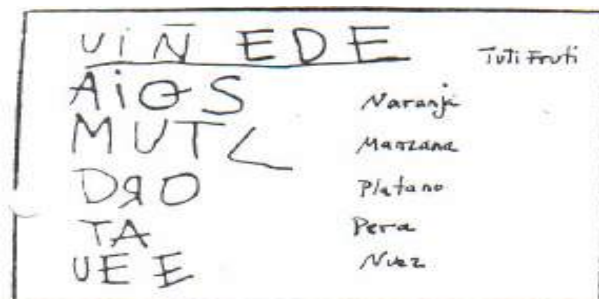 UiÑ EDE Tuti Fruti
AiOS Naranja
MUTL Manzana
DRO Platano
TA Pera
UEE Nuez